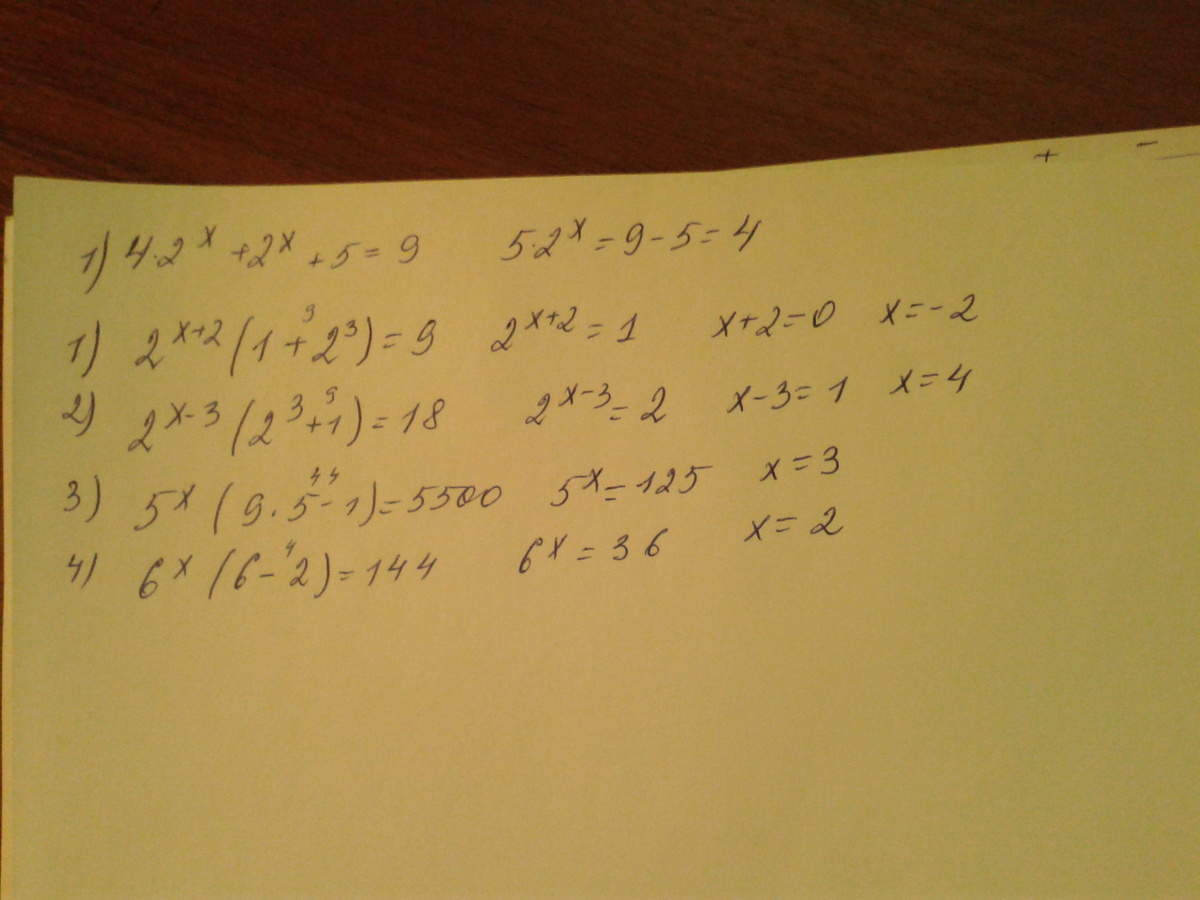 + -
1) 4·2^x + 2^x + 5 = 9 5·2^x = 9 - 5 = 4
1) 2^(x+2) (1 + 2^3) = 9 9 2^(x+2) = 1 x+2=0 x=-2
2) 2^(x-3) (2^3 + 1) = 18 9 2^(x-3) = 2 x-3=1 x=4
3) 5^x (9·5 - 1) = 5500 44 5^x = 125 x=3
4) 6^x (6 - 2) = 144 4 6^x = 36 x=2